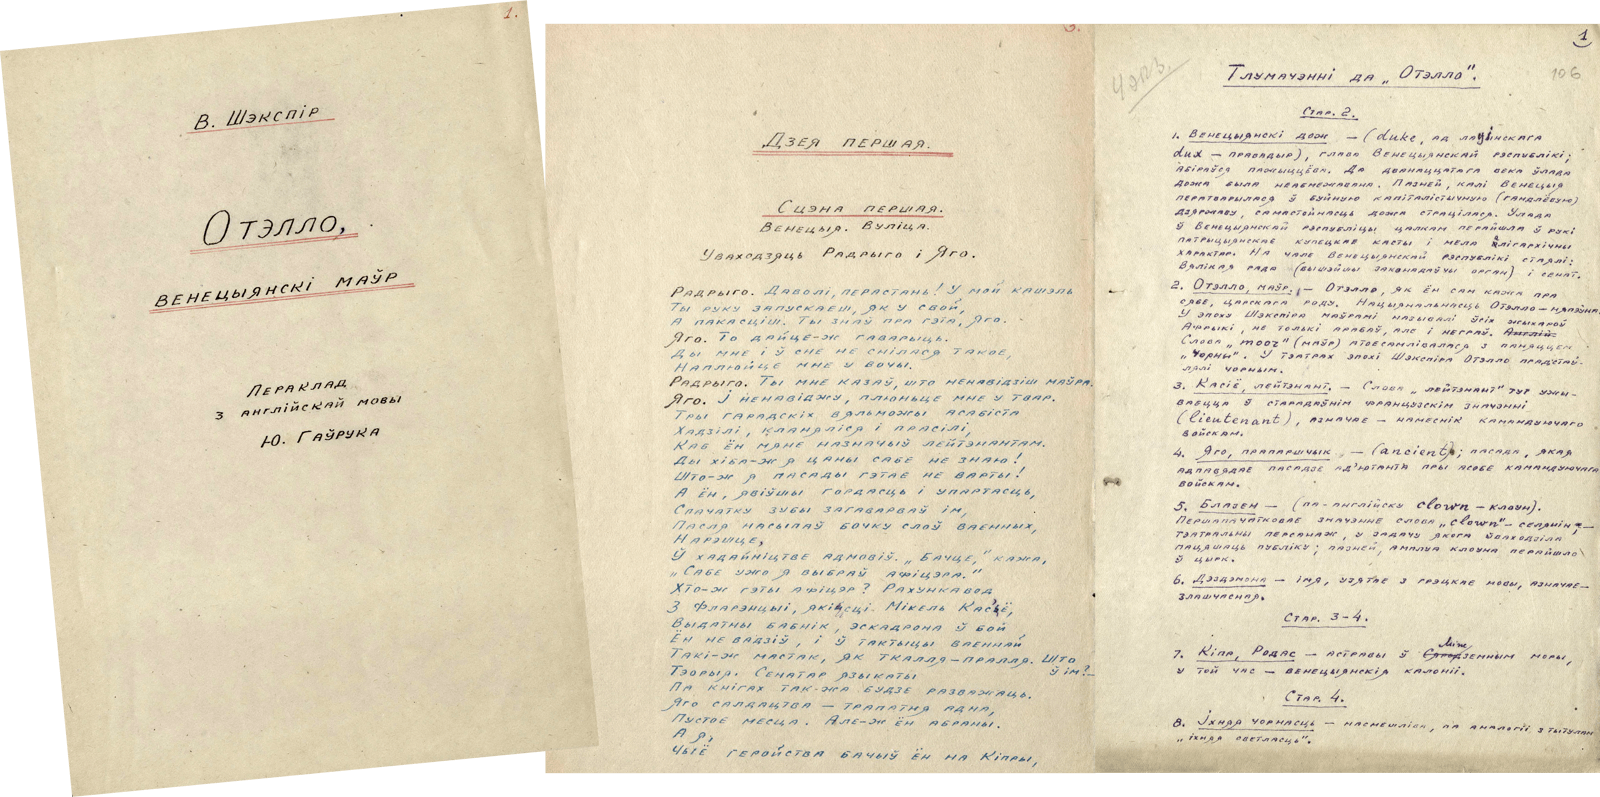 1.
В. Шэкспір
Отэлло,
венецыянскі маўр
Пераклад
з англійскай мовы
Ю. Гаўрука
3.
Дзея першая.
Сцэна першая.
Венецыя. Вуліца.
Уваходзяць Радрыго і Яго.
Радрыго. Даволі, перастань! У мой кашэль
Ты руку запускаеш, як у свой,
А пакасціш. Ты знаў пра гэта, Яго.
Яго. То дайце-ж гаварыць.
Ды мне і ў сне не снілася такое,
Наплюйце мне у вочы.
Радрыго. Ты мне казаў, што ненавідзіш маўра.
Яго. І ненавіджу, плюньце мне у твар.
Тры гарадскіх вяльможы асабіста
Хадзілі, кланяліся і прасілі,
Каб ён мяне назначыў лейтэнантам.
Ды хіба-ж я цаны сабе не знаю!
Што-ж я пасады гэтае не варты!
А ён, явіўшы гордасць і упартасць,
Спачатку зубы загаварваў ім,
Пасля насыпаў бочку слоў ваенных,
Нарэшце,
Ў хадайніцтве адмовіў. „Бачце," кажа,
„Сабе ужо я выбраў афіцэра."
Хто-ж гэты афіцэр? Рахункавод
З Фларэнцыі, якійсці Мікель Касіё,
Выдатны бабнік, эскадрона ў бой
Ён не вадзіў, і ў тактыцы ваеннай
Такі-ж мастак, як ткалля-пралля. Што
ў ім?—
Тэорыя. Сенатар языкаты
Па кнігах так-жа будзе разважаць.
Яго салдацтва — трапатня адна,
Пустое месца. Але-ж ён абраны.
А я,
Чыё геройства бачыў ён на Кіпры,
1
106
Тлумачэнні да „Отэлло".
Стар. 2.
1. Венецыянскі дож — (duke, ад лацінскага
dux — правадыр), глава Венецыянскай рэспублікі;
абіраўся пажыццёва. Да дванаццатага века ўлада
дожа была неабмежавана. Пазней, калі Венецыя
ператварылася ў буйную капіталістычную (гандлёвую)
дзяржаву, самастойнасць дожа страцілася. Улада
ў Венецыянскай рэспубліцы цалкам перайшла ў рукі
патрыцыянскае купецкае касты і мела алігархічны
характар. На чале Венецыянскай рэспублікі стаялі:
Вялікая рада (вышэйшы заканадаўчы орган) і сенат.
2. Отэлло, маўр. — Отэлло, як ён сам кажа пра
сябе, царскага роду. Нацыянальнасць Отэлло — няпэўна.
У эпоху Шэкспіра маўрамі называлі ўсіх жыхароў
Афрыкі, не толькі арабаў, але і неграў. Англій-
Слова „moor" (маўр) атоесамлівалася з паняццем
„чорны". У тэатрах эпохі Шэкспіра Отэлло прадстаў-
лялі чорным.
3. Касіё, лейтэнант. — Слова „лейтэнант" тут ужы-
ваецца ў старадаўнім французскім значэнні
(lieutenant), азначае — намеснік камандуючага
войскам.
4. Яго, прапаршчык — (ancient); пасада, якая
адпавядае пасадзе ад'ютанта пры асобе камандуючага
войскам.
5. Блазен — (па-англійску clown — клоун).
Першапачатковае значэнне слова „clown" — селянін, —
тэатральны персанаж, у задачу якога ўваходзіла
пацяшаць публіку; пазней, амплуа клоуна перайшло
ў цырк.
6. Дэздэмона — імя, узятае з грэцкае мовы, азначае —
злашчасная.
Стар. 3-4.
7. Кіпр, Родас — астравы ў Міжземным моры,
у той час — венецыянскія калоніі.
Стар. 4.
8. Іхняя чорнасць — насмешліва, па аналогіі з тытулам
„іхняя светласць".